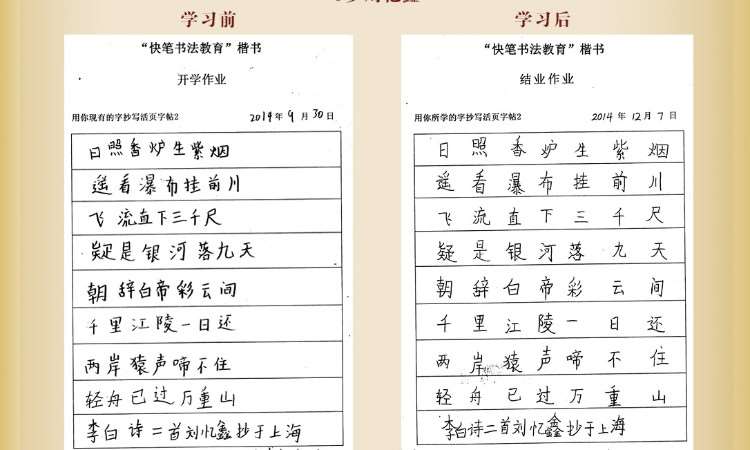 学习前
“快笔书法教育”楷书
开学作业
用你现有的字抄写活页字帖2 2014年9月30日
日照香炉生紫烟
遥看瀑布挂前川
飞流直下三千尺
疑是银河落九天
朝辞白帝彩云间
千里江陵一日还
两岸猿声啼不住
轻舟已过万重山
李白诗二首刘忆鑫抄于上海
学习后
“快笔书法教育”楷书
结业作业
用你所学的字抄写活页字帖2 2014年12月7日
日照香炉生紫烟
遥看瀑布挂前川
飞流直下三千尺
疑是银河落九天
朝辞白帝彩云间
千里江陵一日还
两岸猿声啼不住
轻舟已过万重山
李白诗二首刘忆鑫抄于上海